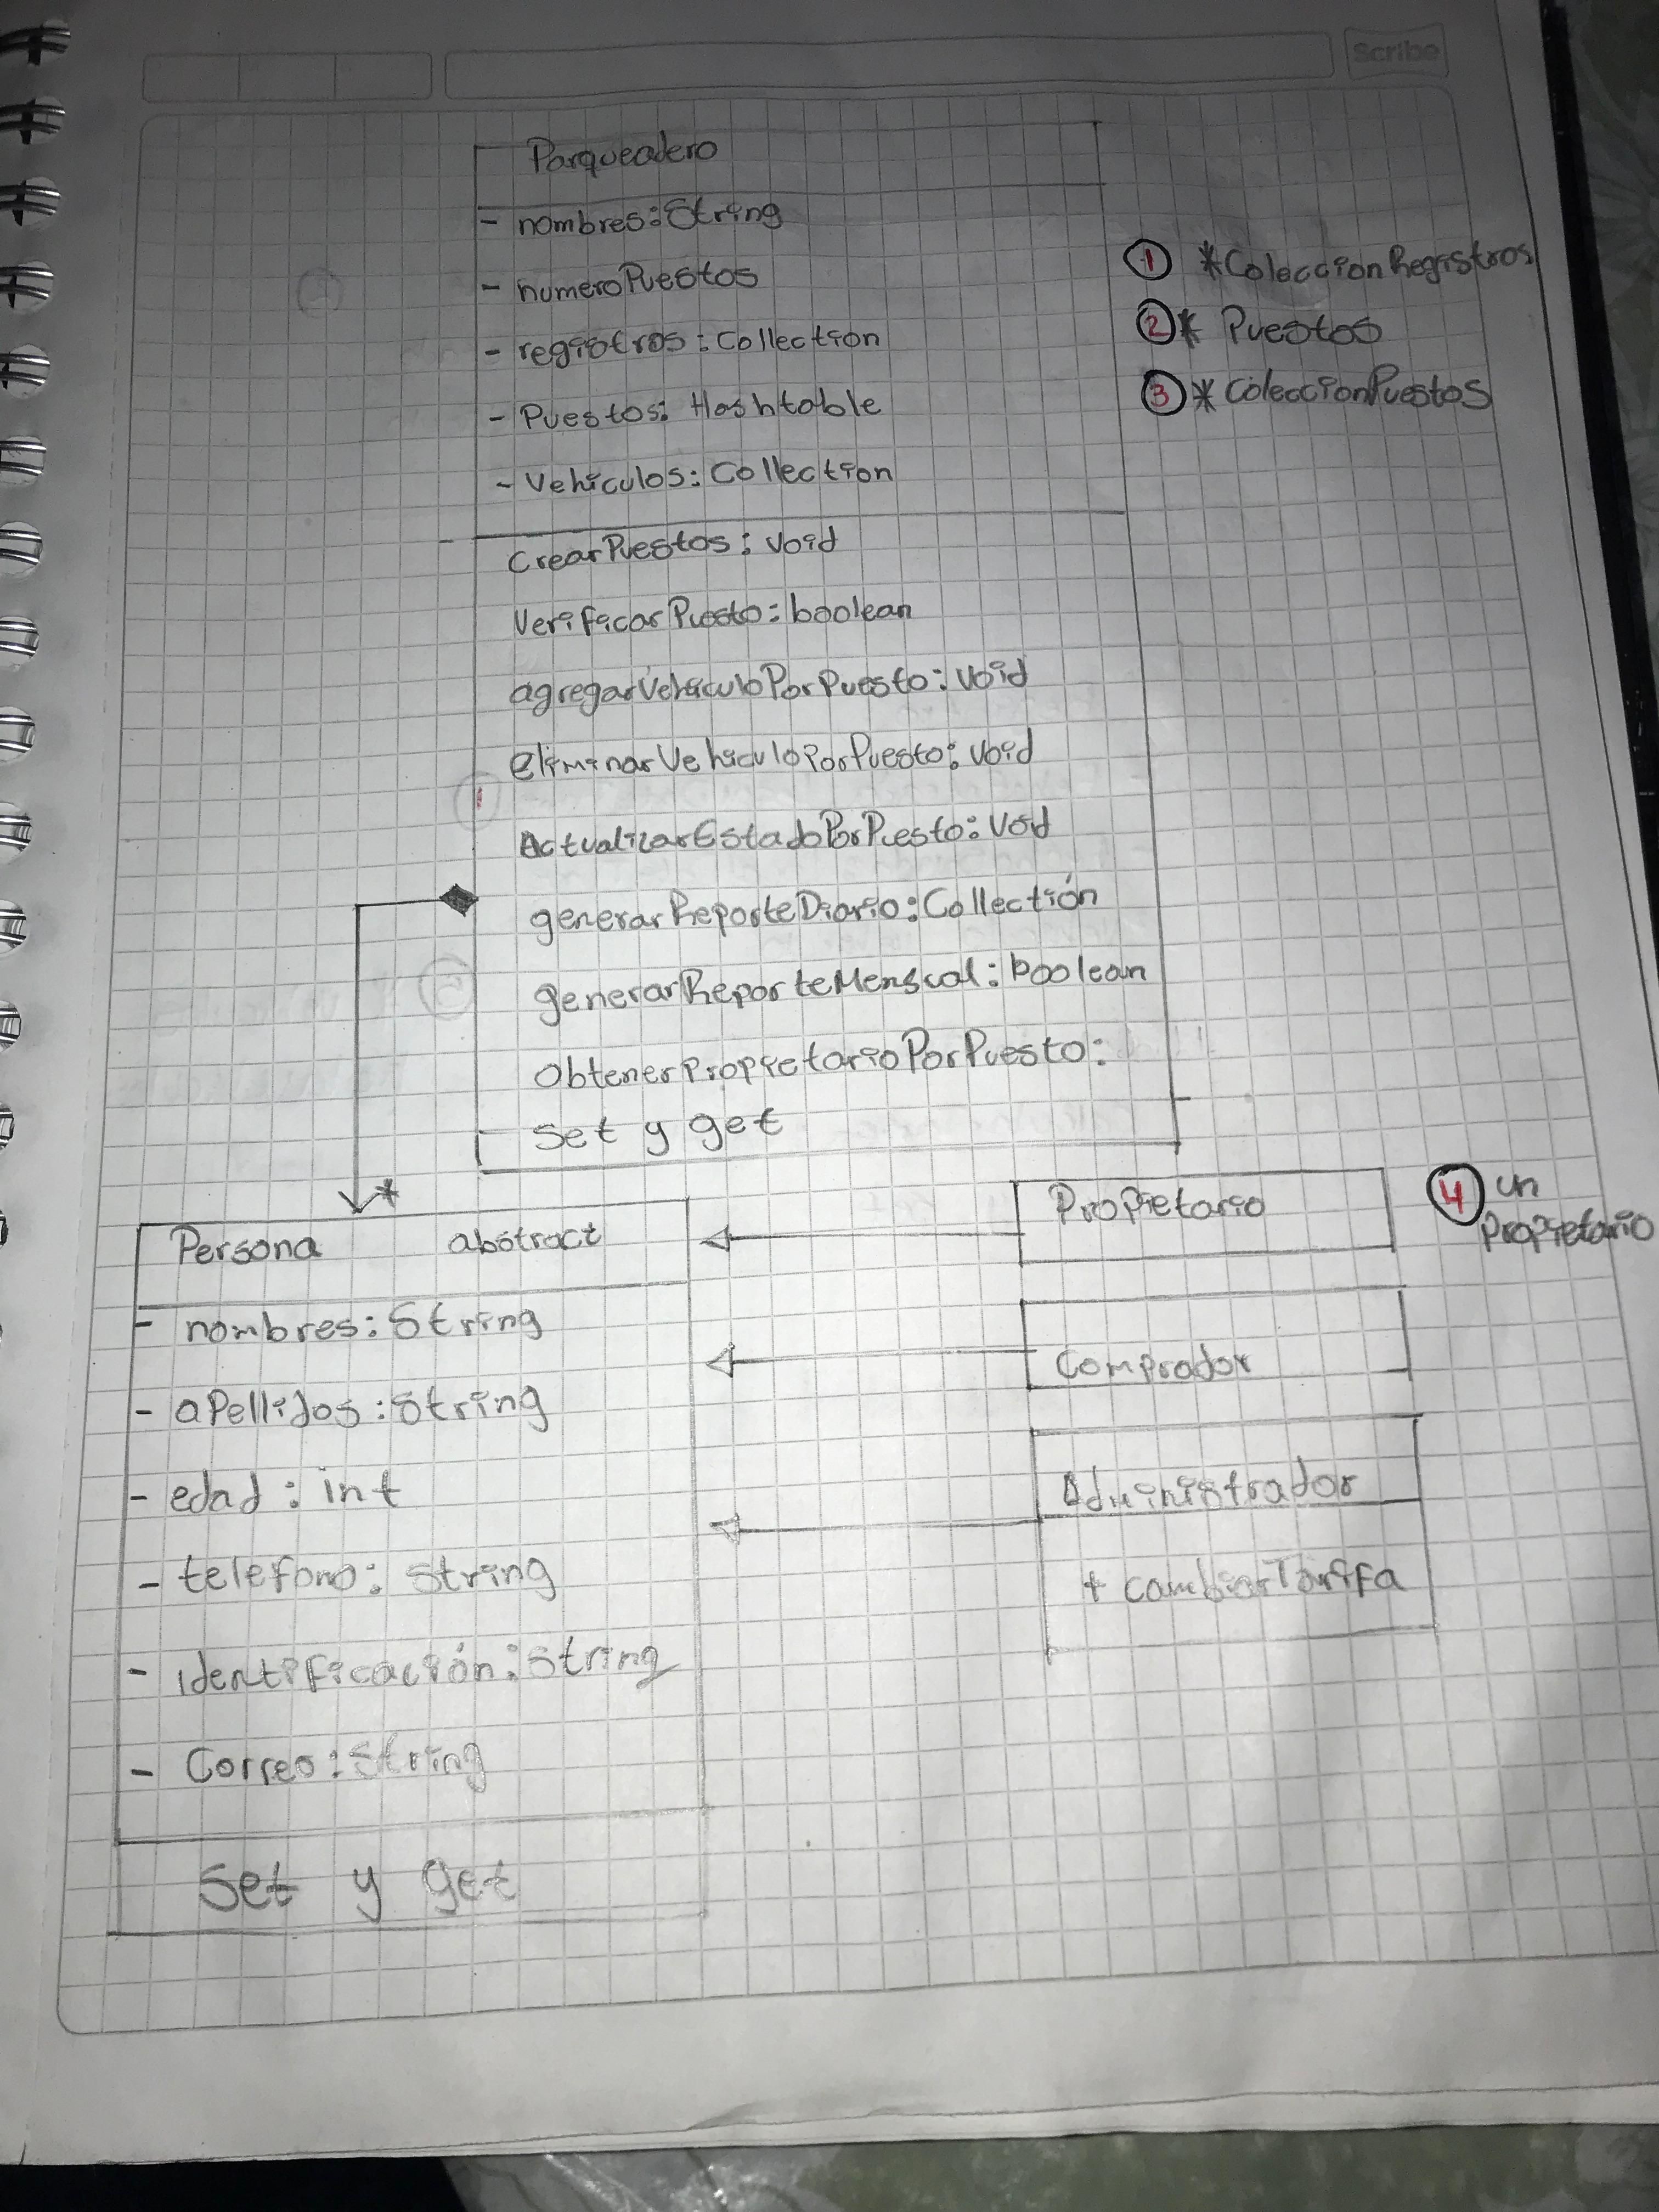 Scribe
Parqueadero
- nombres: String
- numeroPuestos
- registros: Collection
- Puestos: Hashtable
- Vehículos: Collection
1 *ColeccionRegistros
2 * Puestos
3 * ColeccionPuestos
CrearPuestos: Void
VerificarPuesto: boolean
agregarVehiculoPorPuesto: Void
eliminarVehiculoPorPuesto: Void
ActualizarEstadoPorPuesto: Void
generarReporteDiario: Collectión
generarReporteMensual: boolean
ObtenerPropietarioPorPuesto:
Set y get
*
Persona abstract
- nombres: String
- aPellidos: String
- edad: int
- telefono: String
- identificación: String
- Correo: String
Set y get
Propietario
4 un
Propietario
Comprador
Administrador
+ cambiarTarifa